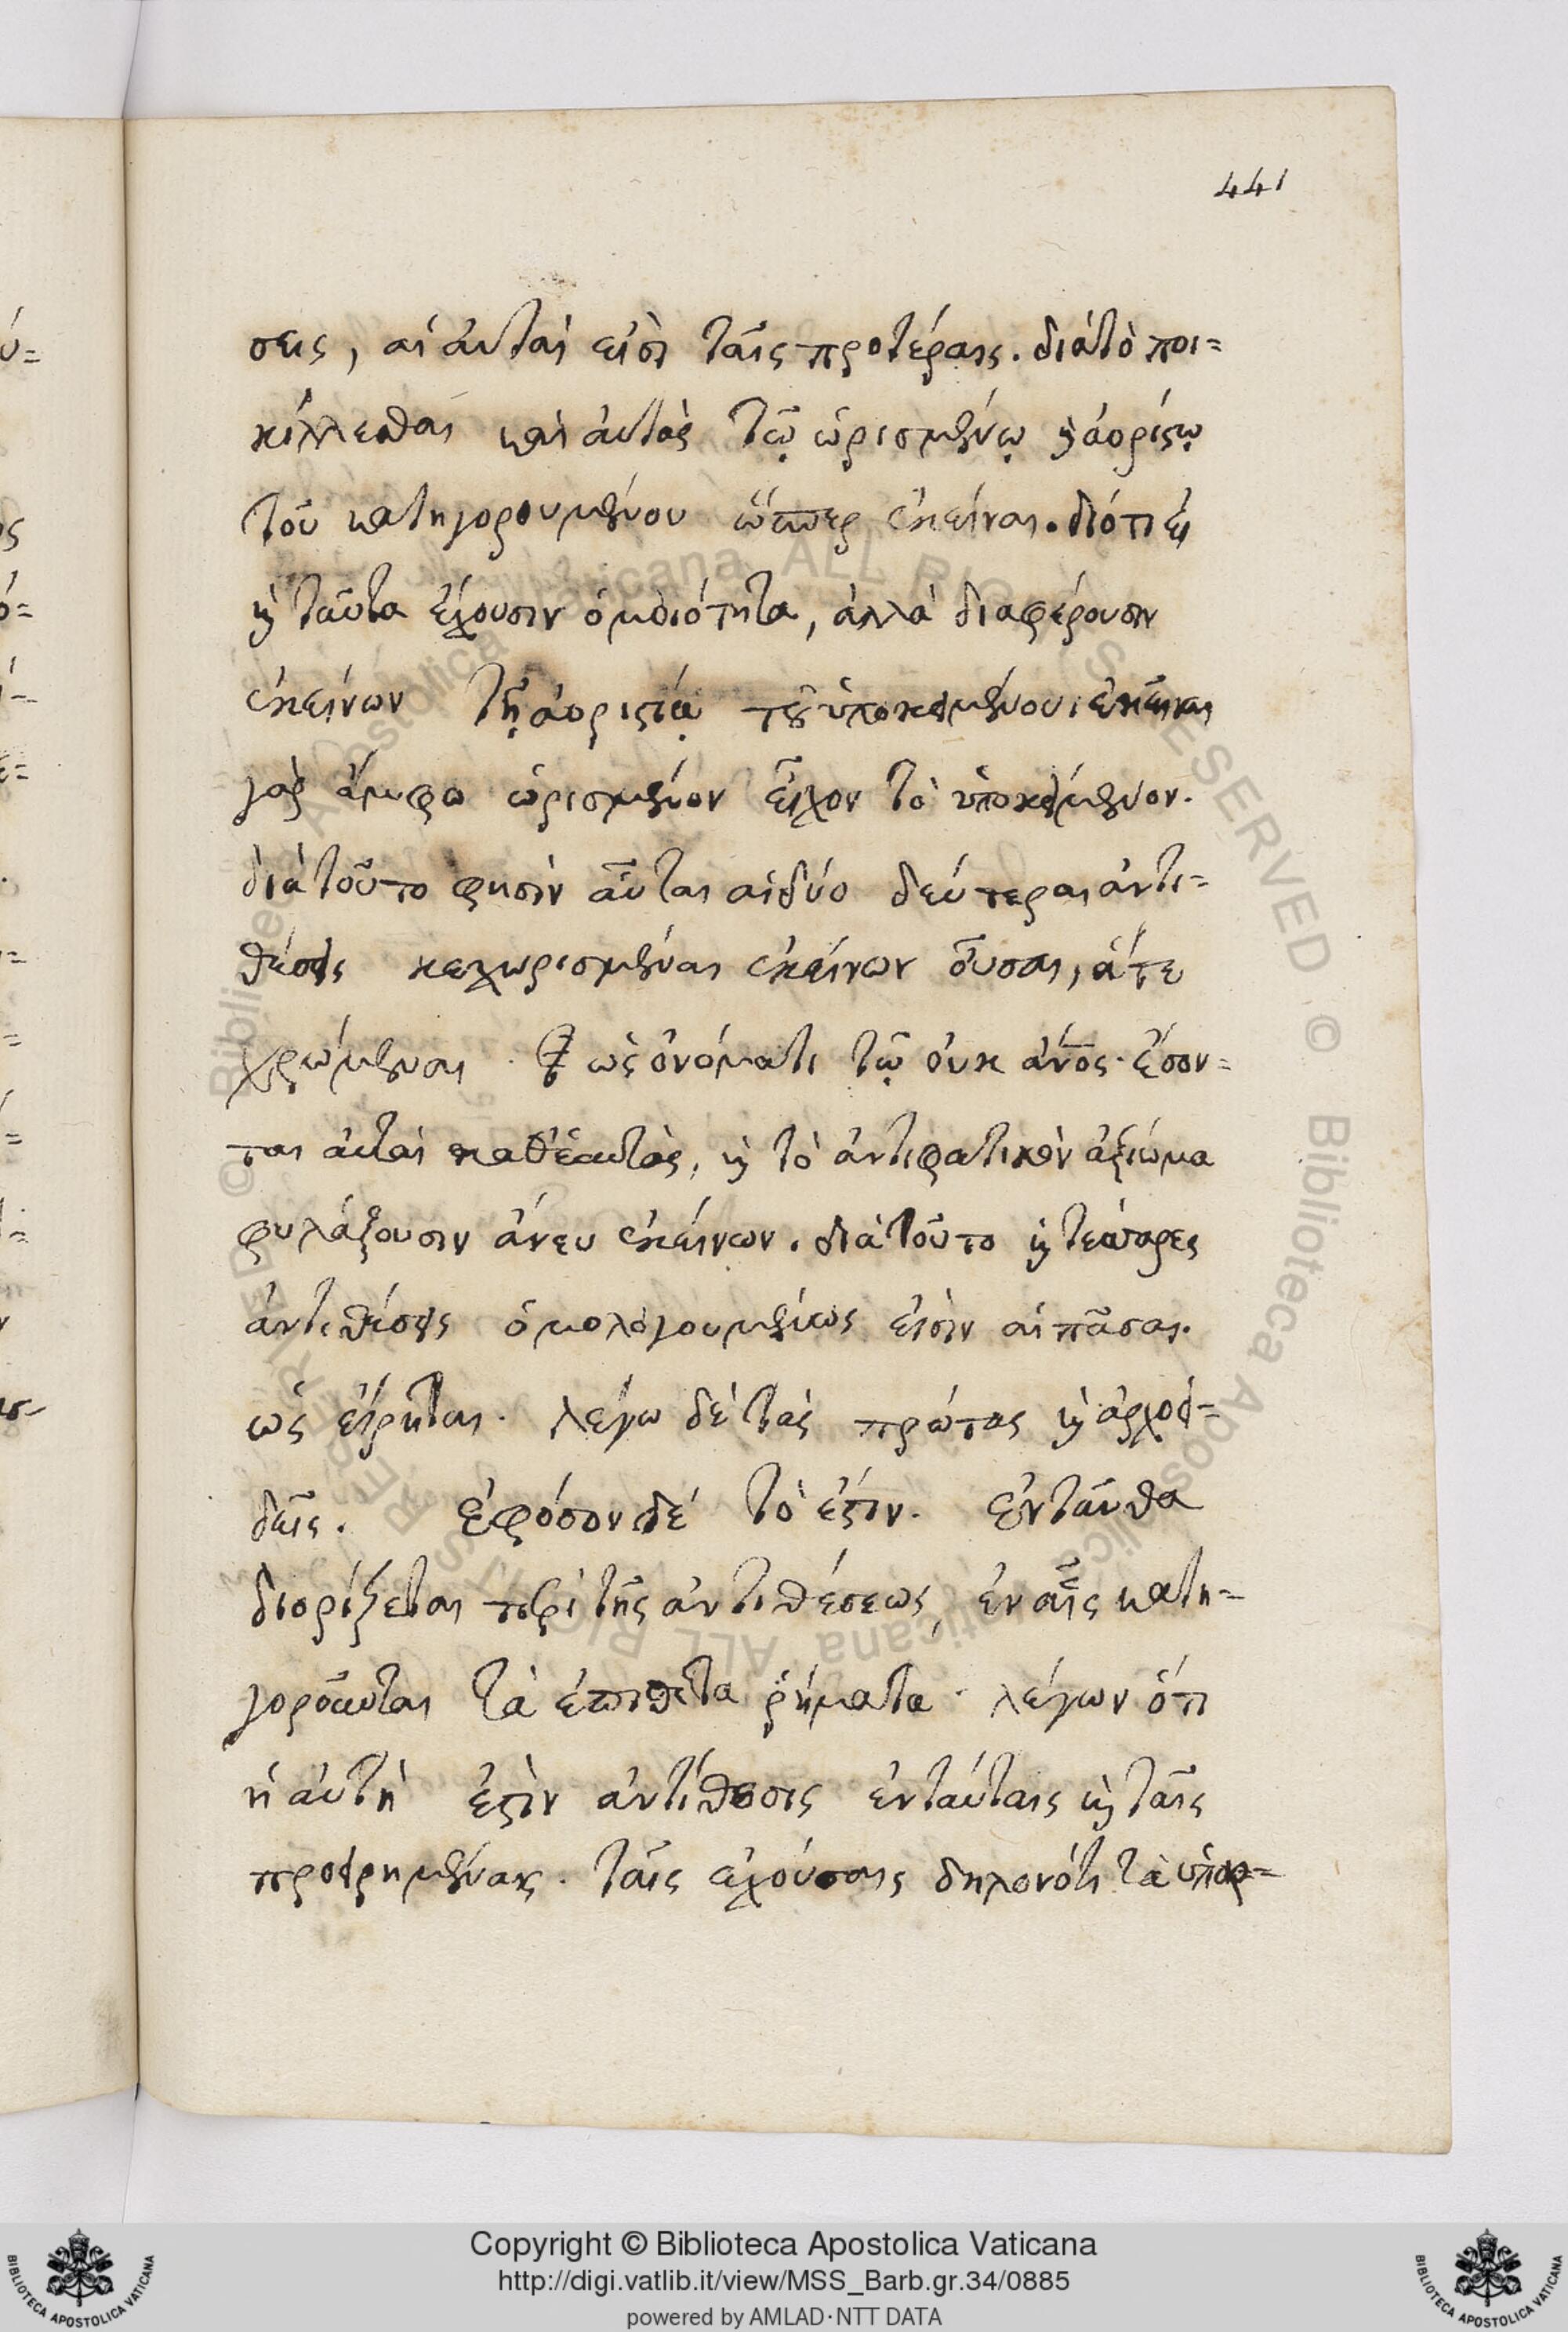 441
σεις, αἱ ἀυταί εἰσι ταῖς προτέραις. διὰ τὸ ποι=
κίλλεσθαι καὶ ἀυτὰς τῷ ὡρισμένῳ καὶ ἀορίστῳ
τοῦ κατηγορουμένου ὥσπερ ἐκείναι. διότι εἰ
καὶ ταῦτα ἔχουσιν ὁμοιότητα, ἀλλὰ διαφέρουσιν
ἐκείνων τῇ ἀοριστίᾳ τοῦ ὑποκειμένου. ἐκεῖναι
γὰρ ἄμφω ὡρισμένον εἶχον τὸ ὑποκείμενον.
διὰ τοῦτο φησὶν αὗται αἱ δύο δεύτεραι ἀντι=
θέσεις κεχωρισμέναι ἐκείνων οὖσαι, ἅτε
χρώμεναι ὡς ὀνόματι τῷ οὐκ ἄνος. ἔσον=
ται ἀυταὶ καθ' ἑαυτὰς, καὶ τὸ ἀντιφατικὸν ἀξίωμα
φυλάξουσιν ἄνευ ἐκείνων. διὰ τοῦτο καὶ τέσσαρες
ἀντιθέσεις ὁμολογουμένως εἰσὶν αἱ πᾶσαι.
ὡς εἴρηται. λέγω δὲ τὰς πρώτας καὶ ἀρχοει=
δεῖς. ἐφόσον δέ τὸ ἔστιν. ἐνταῦθα
διορίζεται περὶ τῆς ἀντιθέσεως, ἐν αἷς κατη=
γοροῦνται τὰ ἐπιθετα ῥήματα. λέγων ὅτι
ἡ ἀυτὴ ἐστὶν ἀντίθεσις ἐν ταύταις καὶ ταῖς
προειρημέναις. ταῖς ἐχούσαις δηλονότι τὰ ὑπαρ=
Copyright © Biblioteca Apostolica Vaticana
http://digi.vatlib.it/view/MSS_Barb.gr.34/0885
powered by AMLAD·NTT DATA